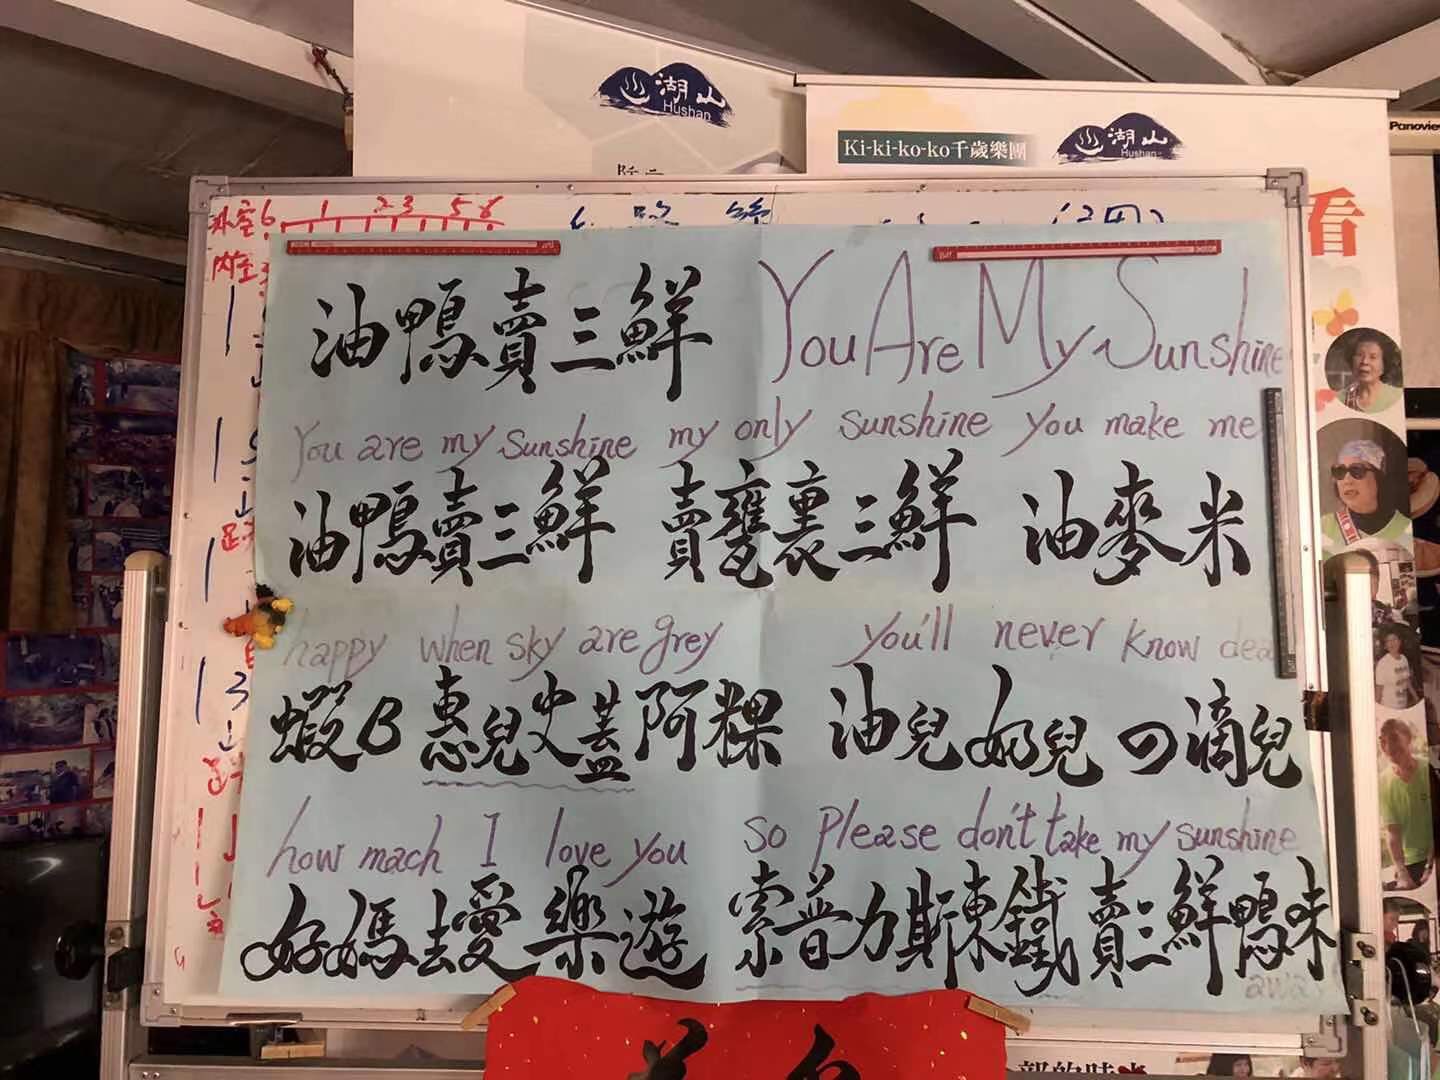 湖山
Hushan
Ki-ki-ko-ko千歲樂團
湖山
Hushan
Panoview
看
油鴨賣三鮮 You Are My Sunshine
You are my sunshine my only sunshine you make me
油鴨賣三鮮 賣甕裏三鮮 油麥米
happy when sky are grey you'll never know dea
蝦B惠兒史蓋阿粿 油兒奶兒の滴兒
how mach I love you so please don't take my sunshine
好媽去愛樂遊 索普力斯東鐵賣三鮮鴨味
away